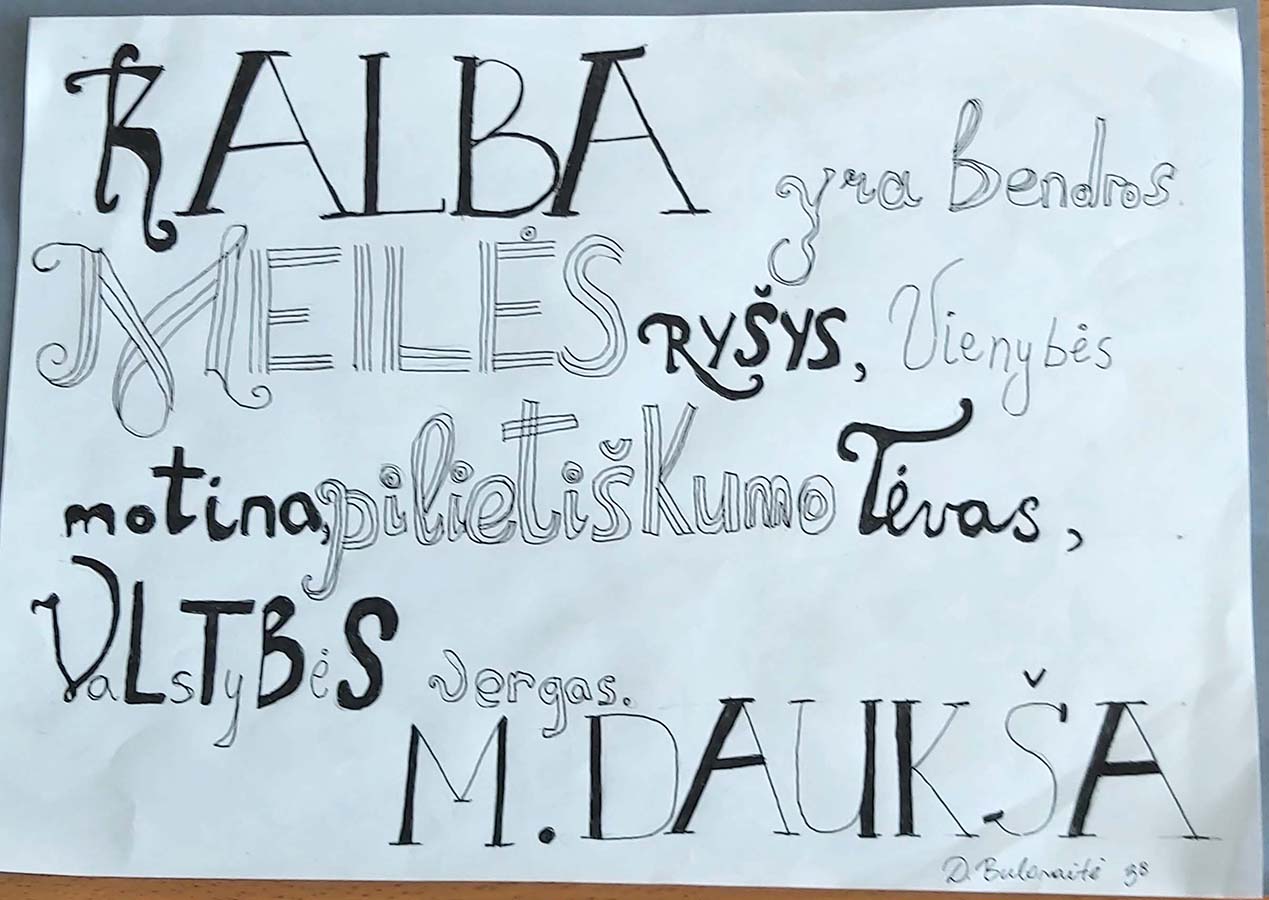 KALBA yra Bendros
MEILĖS RYŠYS, Vienybės
motina, pilietiškumo Tėvas,
VaLsTyBėS vergas.
M. DAUKŠA
D. Bulonaitė 38